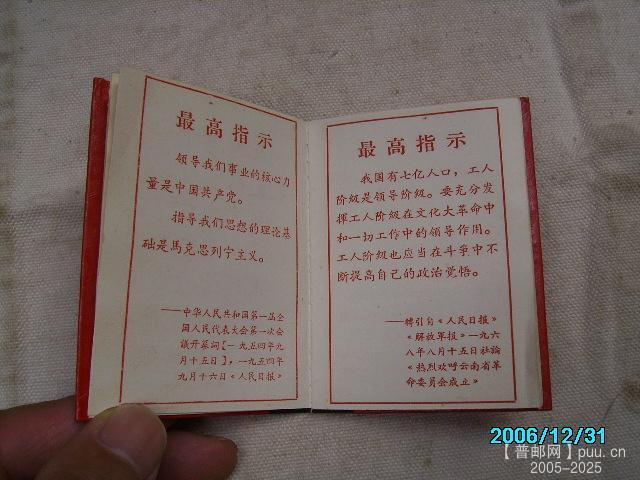 最高指示
领导我们事业的核心力
量是中国共产党。
指导我们思想的理论基
础是馬克思列宁主义。
——中华人民共和国第一届全
国人民代表大会第一次会
議开幕詞【一九五四年九
月十五日】，一九五四年
九月十六日《人民日报》
最高指示
我国有七亿人口，工人
阶級是领导阶級。要充分发
揮工人阶級在文化大革命中
和一切工作中的领导作用。
工人阶級也应当在斗爭中不
断提高自己的政治覚悟。
——轉引自《人民日报》
《解放軍报》一九六
八年八月十五日社論
《热烈欢呼云南省革
命委员会成立》
2006/12/31
【普邮网】puu.cn
2005-2025